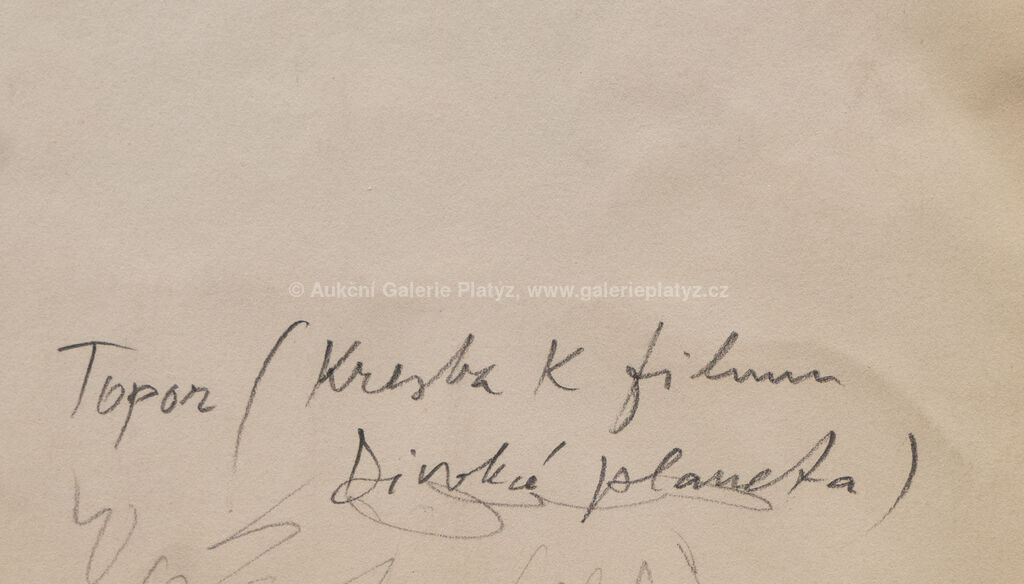 © Aukční Galerie Platyz, www.galerieplatyz.cz
Topor (Kresba K filmu
Divoká planeta)